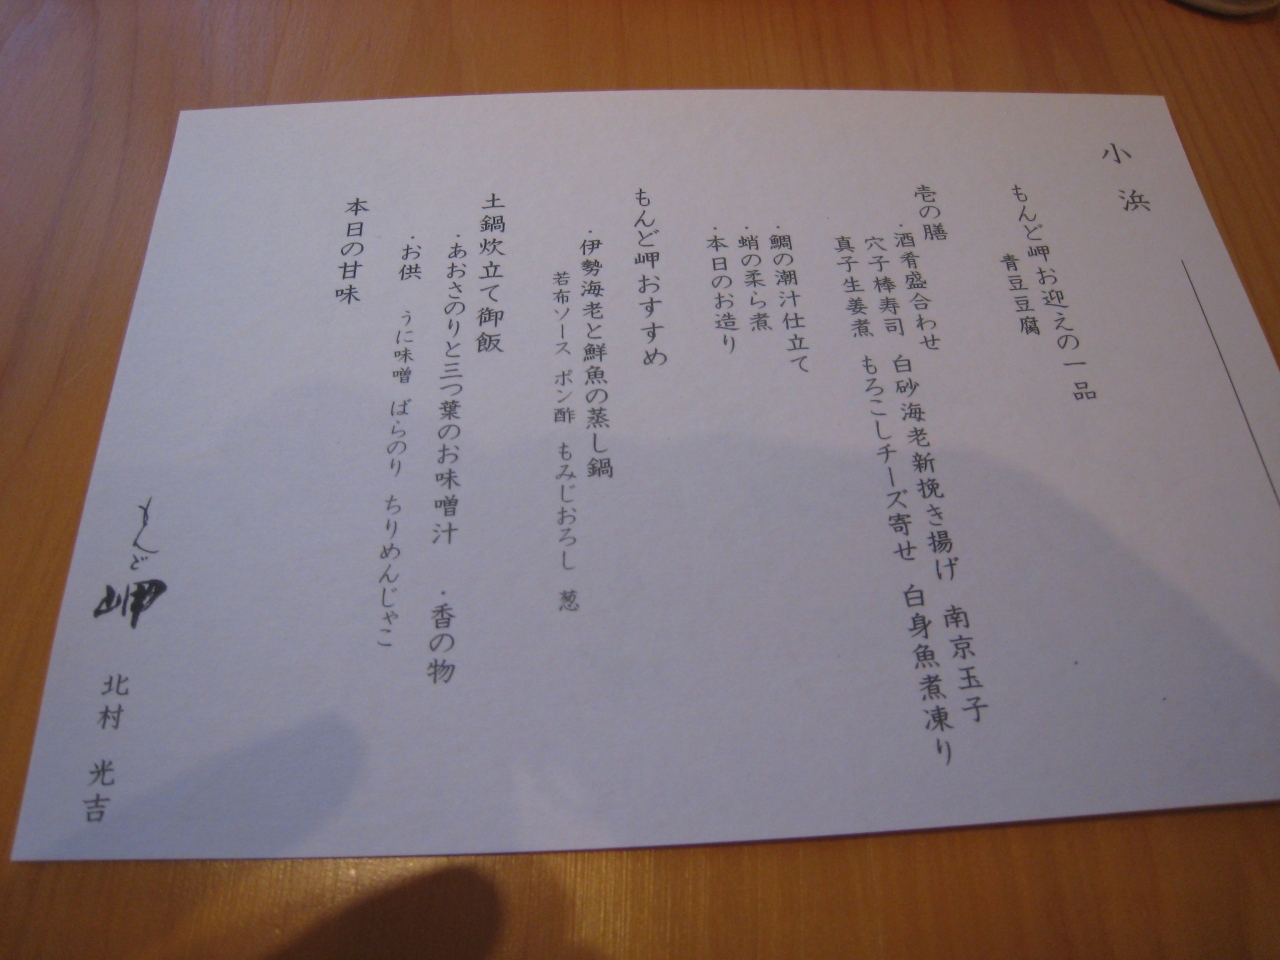 小浜
もんど岬お迎えの一品
青豆豆腐
壱の膳
・酒肴盛合わせ　白砂海老新挽き揚げ　南京玉子
穴子棒寿司　もろこしチーズ寄せ　白身魚煮凍り
真子生姜煮
・鯛の潮汁仕立て
・蛸の柔ら煮
・本日のお造り
もんど岬おすすめ
・伊勢海老と鮮魚の蒸し鍋
若布ソース　ポン酢　もみじおろし　葱
土鍋炊立て御飯
・あおさのりと三つ葉のお味噌汁　・香の物
・お供　うに味噌　ばらのり　ちりめんじゃこ
本日の甘味
もんど岬　北村　光吉